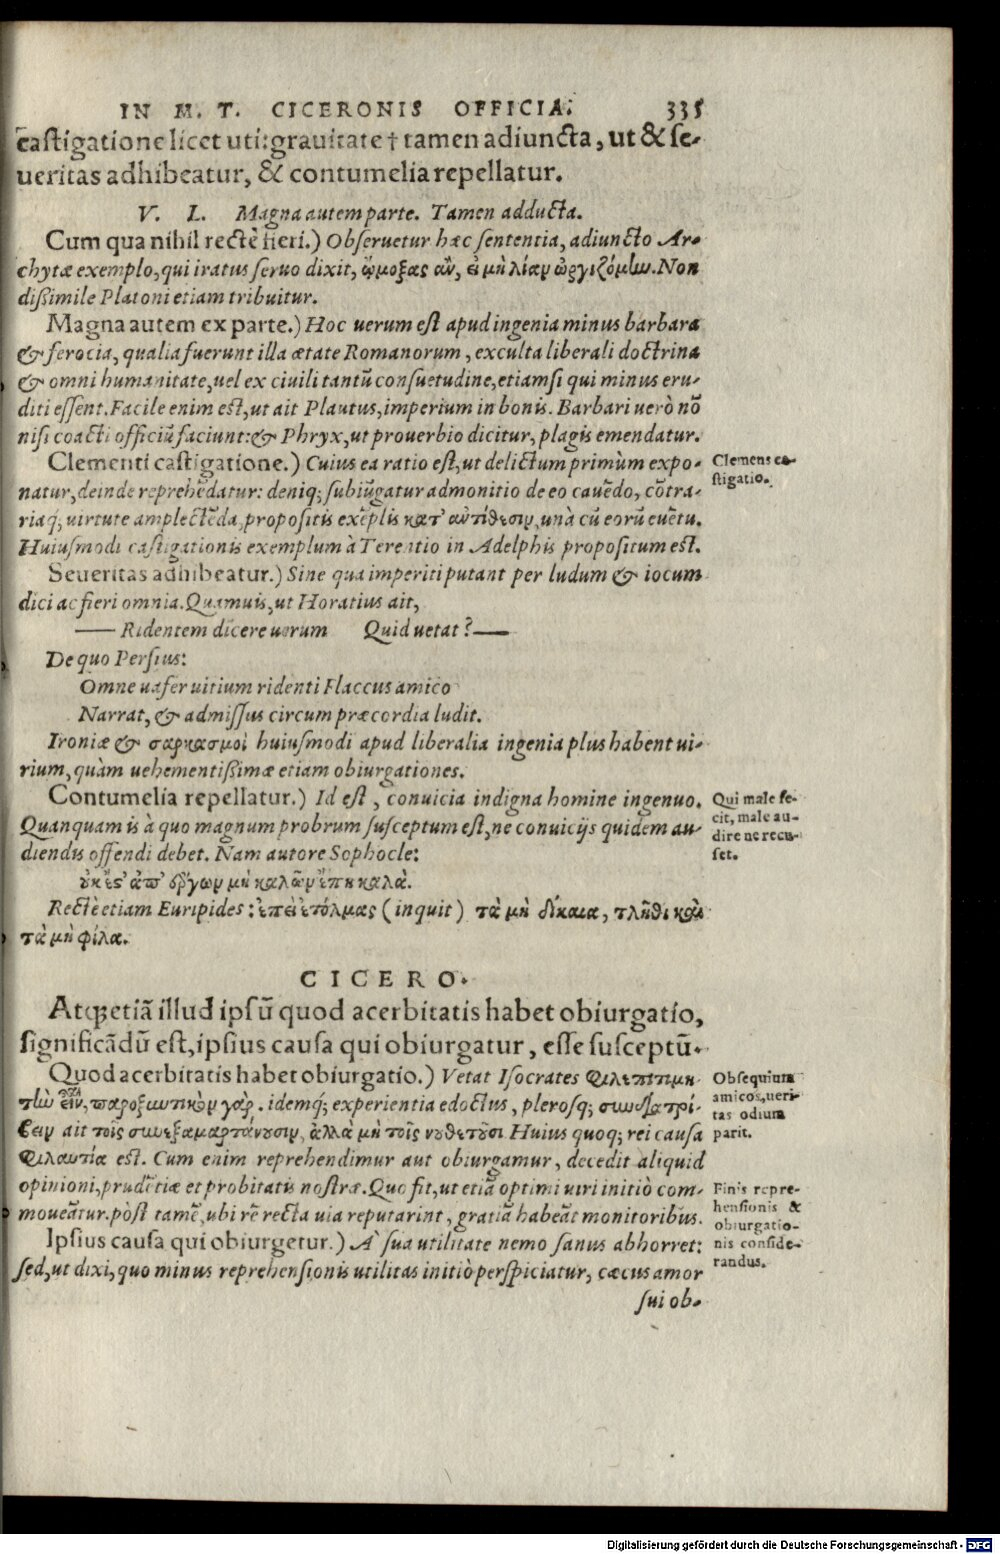 IN M. T. CICERONIS OFFICIA. 335
castigatione licet uti: grauitate † tamen adiuncta, ut & se-
ueritas adhibeatur, & contumelia repellatur.
V. L. Magna autem parte. Tamen adducta.
Cum qua nihil rectè fieri.) Obseruetur hæc sententia, adiuncto Ar-
chytæ exemplo, qui iratus seruo dixit, ᾤμοξας ἂν, εἰ μὴ λίαν ὠργιζόμην. Non
dißimile Platoni etiam tribuitur.
Magna autem ex parte.) Hoc uerum est apud ingenia minus barbara
& ferocia, qualia fuerunt illa ætate Romanorum, exculta liberali doctrina
& omni humanitate, uel ex ciuili tantũ consuetudine, etiamsi qui minus eru-
diti essent. Facile enim est, ut ait Plautus, imperium in bonis. Barbari uerò nõ
nisi coacti officiũ faciunt: & Phryx, ut prouerbio dicitur, plagis emendatur.
Clementi castigatione.) Cuius ea ratio est, ut delictum primùm expo-
natur, deinde reprehẽdatur: deniq; subiũgatur admonitio de eo cauẽdo, cõtra-
riaq́; uirtute amplectẽda, propositis exẽplis κατ' ἀντίθεσιν, unà cũ eorũ euẽtu.
Huiusmodi castigationis exemplum à Terentio in Adelphis propositum est.
Clemens ca-
stigatio.
Seueritas adhibeatur.) Sine qua imperiti putant per ludum & iocum
dici ac fieri omnia. Quamuis, ut Horatius ait,
—— Ridentem dicere uerum Quid uetat? ——
De quo Persius:
Omne uafer uitium ridenti Flaccus amico
Narrat, & admissus circum præcordia ludit.
Ironiæ & σαρκασμοὶ huiusmodi apud liberalia ingenia plus habent ui-
rium, quàm uehementißimæ etiam obiurgationes.
Contumelia repellatur.) Id est, conuicia indigna homine ingenuo.
Quanquam is à quo magnum probrum susceptum est, ne conuicijs quidem au-
diendis offendi debet. Nam autore Sophocle:
Qui male fe-
cit, male au-
dire ne recu-
set.
οὐκ ἔστ' ἀπ' ἔργων μὴ καλῶν ἔπη καλά.
Rectè etiam Euripides: ἐπεὶ ἐτόλμας (inquit) τὰ μὴ δίκαια, τλῆθι καὶ
τὰ μὴ φίλα.
CICERO.
Atq; etiã illud ipsũ quod acerbitatis habet obiurgatio,
significãdũ est, ipsius causa qui obiurgatur, esse susceptũ.
Quod acerbitatis habet obiurgatio.) Vetat Isocrates φιλεπιτιμη-
τὴν εἶναι, παροξυντικὸν γάρ. idemq́; experientia edoctus, plerosq; συνδιατρί-
βειν ait τοῖς συνεξαμαρτάνουσιν, ἀλλὰ μὴ τοῖς νουθετοῦσι. Huius quoq; rei causa
φιλαυτία est. Cum enim reprehendimur aut obiurgamur, decedit aliquid
opinioni, prudẽtiæ et probitatis nostræ. Quo fit, ut etiã optimi uiri initiò com-
moueãtur. pòst tamẽ, ubi rẽ recta uia reputarint, gratiã habeãt monitoribus.
Obsequium
amicos, ueri-
tas odium
parit.
Ipsius causa qui obiurgetur.) A` sua utilitate nemo sanus abhorret:
sed, ut dixi, quo minus reprehensionis utilitas initiò perspiciatur, cæcus amor
Finis repre-
hensionis &
obiurgatio-
nis conside-
randus.
sui ob-
Digitalisierung gefördert durch die Deutsche Forschungsgemeinschaft - DFG